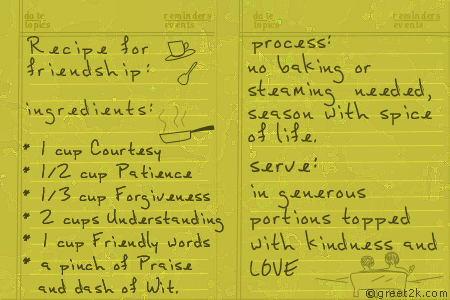 date
topics
reminders
events
Recipe for
friendship:
ingredients:
* 1 cup Courtesy
* 1/2 cup Patience
* 1/3 cup Forgiveness
* 2 cups Understanding
* 1 cup Friendly words
* a pinch of Praise
and dash of Wit.
date
topics
reminders
events
process:
no baking or
steaming needed,
season with spice
of life.
serve:
in generous
portions topped
with kindness and
LOVE
©greet2k.com